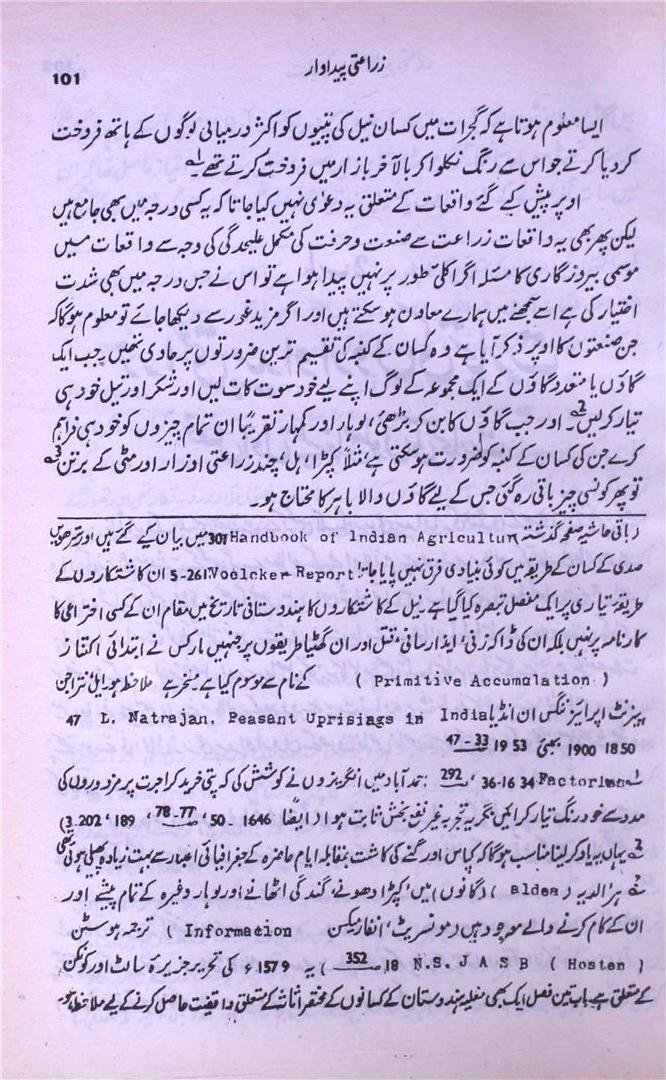 101
زراعتی پیداوار
ایسا معلوم ہوتا ہے کہ گجرات میں کسان نیل کی پتیوں کو اکثر درمیانی لوگوں کے ہاتھ فروخت
کردیا کرتے جو اس سے رنگ نکلوا کر بالآخر بازار میں فروخت کرتے تھے۔1
اوپر پیش کیے گئے واقعات کے متعلق یہ دعویٰ نہیں کیا جاتا کہ یہ کسی درجہ میں بھی جامع ہیں
لیکن پھر بھی یہ واقعات زراعت سے صنعت وحرفت کی مکمل علیحدگی کی وجہ سے واقعات میں
موسمی بیروزگاری کا مسئلہ اگر کلی طور پر نہیں پیدا ہوا ہے تو اس نے جس درجہ میں بھی شدت
اختیار کی ہے اسے سمجھنے میں ہمارے معاون ہوسکتے ہیں اور اگر مزید غور سے دیکھا جائے تو معلوم ہوگا کہ
جن صنعتوں کا اوپر ذکر آیا ہے وہ کسان کے کنبہ کی تقسیم ترین ضرورتوں پر حاوی تھیں۔ جب ایک
گاؤں یا متعدد گاؤں کے ایک مجموعہ کے لوگ اپنے لیے خود سوت کات لیں اور شکر اور نیل خود ہی
تیار کرلیں2۔ اور جب گاؤں کا بن کر بڑھئی، لوہار اور کمہار تقریباً ان تمام چیزوں کو خود ہی فراہم
کرے جن کی کسان کے کنبہ کو ضرورت ہوسکتی ہے، مثلاً کپڑا، ہل، چند زراعتی اوزار اور مٹی کے برتن3
تو پھر کونسی چیز باقی رہ گئی جس کے لیے گاؤں والا باہر کا محتاج ہو۔
(باقی حاشیہ صفحہ گذشتہ) Handbook of Indian Agricultur 307 میں بیان کیے گئے ہیں اور سترھویں
صدی کے کسان کے طریقہ میں کوئی بنیادی فرق نہیں پایا جاتا! Voelcker Report 261-5 ان کاشتکاروں کے
طریقہ تیاری پر ایک مفصل تبصرہ کیا گیا ہے۔ نیل کے کاشتکاروں کا ہندوستانی تاریخ میں مقام ان کے کسی اختراعی کا
کارنامہ پر نہیں بلکہ ان کی ڈاکہ زنی، ایذا رسانی، قتل اور ان گھٹیا طریقوں پر جنہیں مارکس نے ابتدائی اکتناز
( Primitive Accumulation ) کے نام سے موسوم کیا ہے منحصر ہے ملاحظہ ہو ایل، نتراجن
پیزنٹ اپرائزنگس ان انڈیا L. Natrajan. Peasant Uprisiags in India 47
1850 1900 بمبئی 1953 33-47
1 Factories 1634-36، 292؛ احمدآباد میں انگریزوں نے کوشش کی کہ پتی خرید کر اجرت پر مزدوروں کی
مدد سے خود رنگ تیار کرائیں مگر یہ تجربہ غیر نفع بخش ثابت ہوا (ایضاً 1646-50، 77-78، 189، 202.3)
2 یہاں یہ یاد کرلینا مناسب ہوگا کہ کپاس اور گنے کی کاشت بمقابلہ ایام حاضرہ کے جغرافیائی اعتبار سے بہت زیادہ پھیلی ہوئی تھی
3 ہر الدیہ ( aldea ) (گانوں) میں، کپڑا دھونے، گندگی اٹھانے اور لوہار وغیرہ کے تمام پیشے اور
ان کے کام کرنے والے موجود ہیں (مونسریٹ، انفارمیکن Information ) ترجمہ ہوسٹن
( Hosten ) N.S. J A S B 18 352) یہ 1579ء کی تحریر جزیرۂ سالسٹ اور کونکن
کے متعلق ہے باب تین فصل ایک بھی مغلیہ ہندوستان کے کسانوں کے مختصر اثاثہ کے متعلق واقفیت حاصل کرنے کے لیے ملاحظہ ہو۔